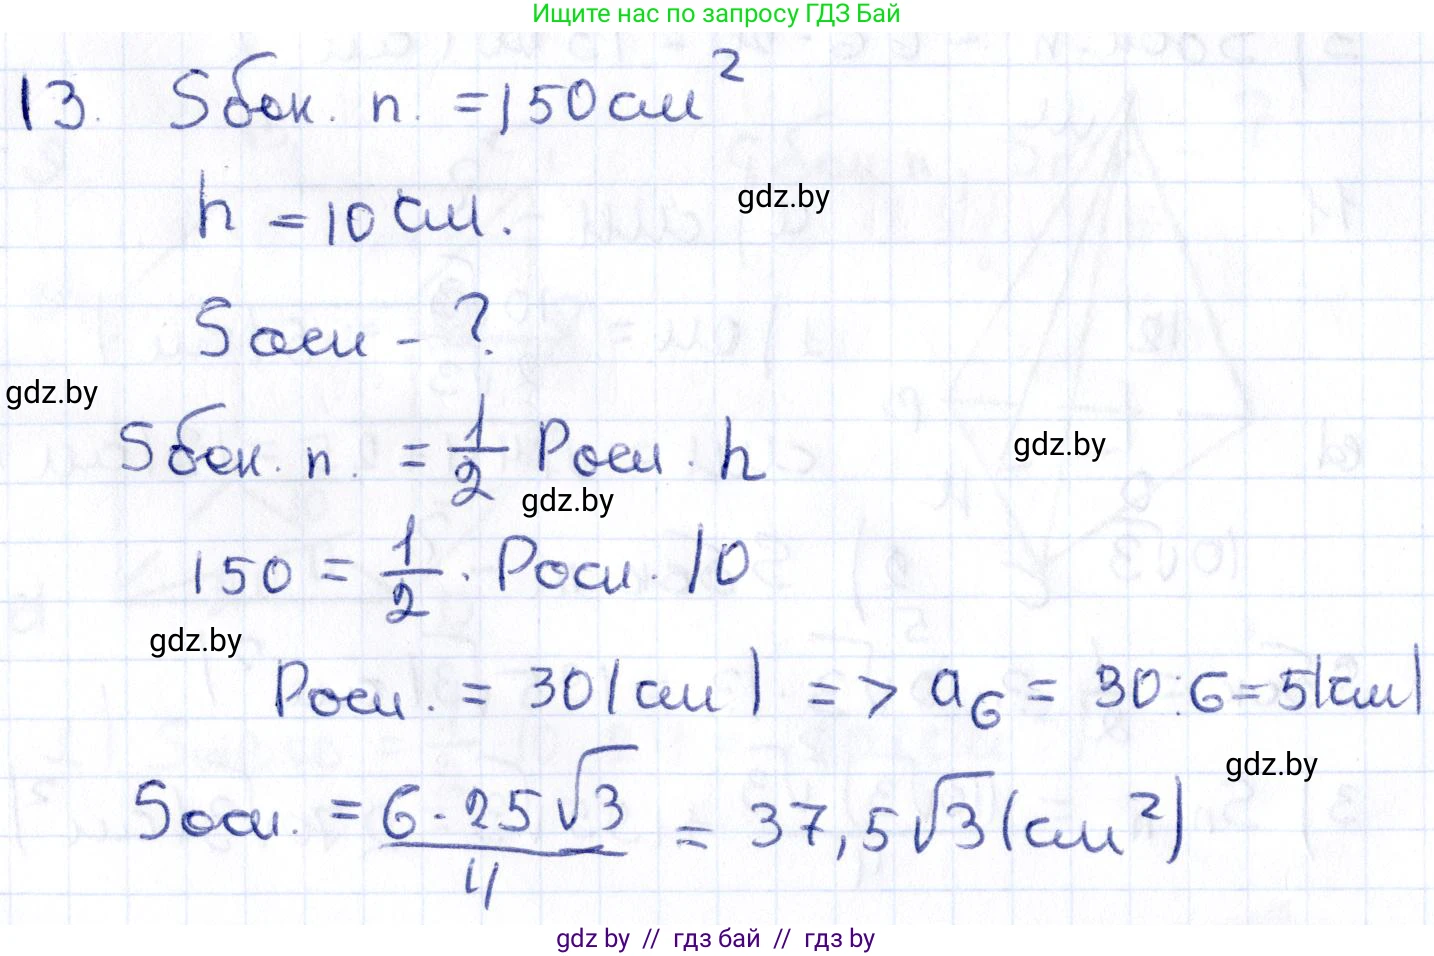 Ищите нас по запросу ГДЗ Бай
13. Sбок. п. = 150 см²
gdz.by
h = 10 см.
Sосн - ?
gdz.by
Sбок. п. = 1/2 Pосн. h
gdz.by
gdz.by
150 = 1/2 · Pосн. 10
gdz.by
Pосн. = 30 (см) => a₆ = 30:6 = 5 (см)
gdz.by
Sосн. = 6·25√3/4 = 37,5√3 (см²)
gdz by // гдз бай // гдз by